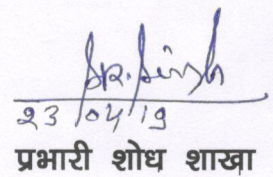 S.R. Singh
23/04/19
प्रभारी शोध शाखा